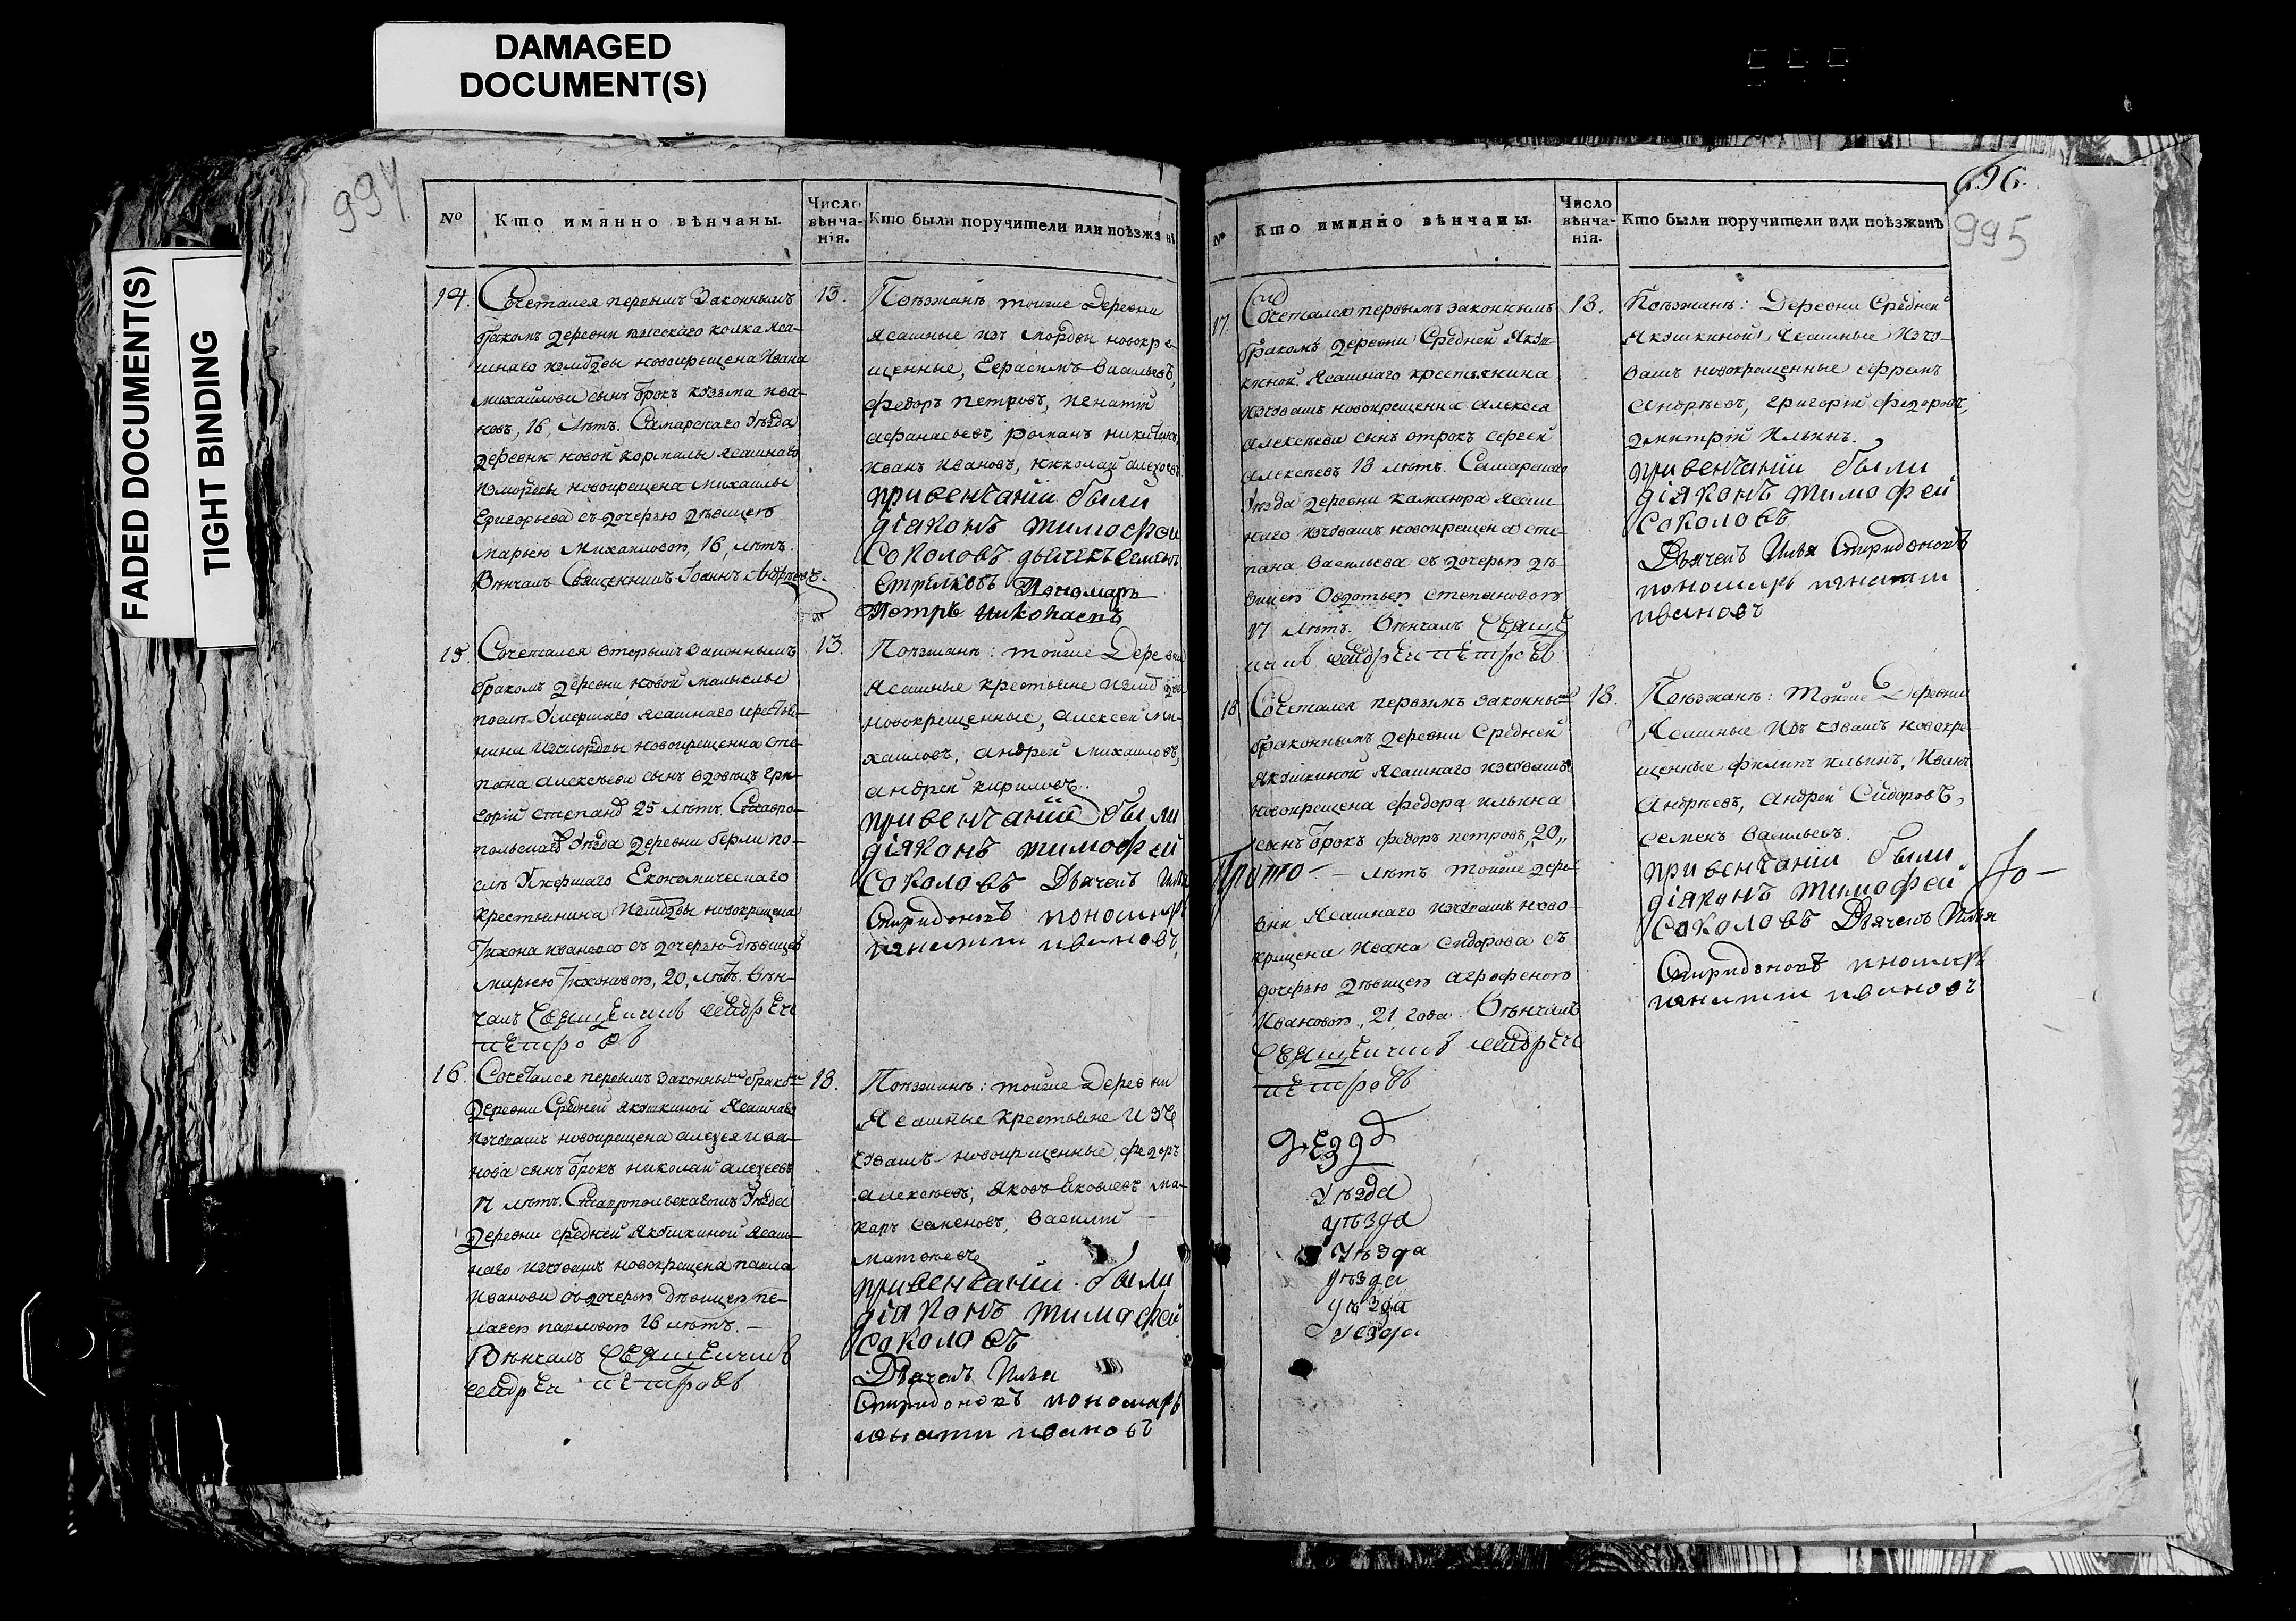 DAMAGED
DOCUMENT(S)
FADED DOCUMENT(S)
TIGHT BINDING
994
№
Кто имянно вѣнчаны.
Число
вѣнча-
нія.
Кто были поручители или поѣзжа нѣ
14.
Сочетался первымъ Законнымъ
бракомъ деревни колка яса-
шнаго новокрещена Ивана
Михайлова сынъ отрокъ козьма ива-
новъ, 16, лѣтъ. Самарскаго уѣзда
деревни новой кармалы ясашнаго
новокрещена Михаилы
Григорьева съ дочерью дѣвицею
Марьею Михаиловою, 16, лѣтъ.
Вѣнчалъ Священникъ Іоаннъ Андрѣевъ.
13.
Поѣзжанѣ тойже Деревни
Ясашные изъ мордвы новокре-
щенные, Герасимъ Васильевъ,
федоръ петровъ, игнатій
афанасьевъ, романъ никитинъ,
иванъ ивановъ, николай
привенчаніи были
діяконъ тимофеи
Соколовъ дьячекъ Семенъ
Стрѣлковъ Пономарь
Петръ николаевъ
15.
Сочетался вторымъ законнымъ
бракомъ деревни новой малыклы
послѣ умершаго ясашнаго кресть-
янина измордвы новокрещенна сте-
пана алексѣева сынъ вдовецъ гри-
горій степановъ 25 лѣтъ. Ставро-
польскаго уѣзда деревни берли по-
слѣ Умершаго Економическаго
крестьянина новокрещена
Тихона иванова съ дочерью дѣвицею
марьею Тихоновою, 20, лѣтъ. вѣн-
чалъ Священникъ андрѣи
петровъ
13.
Поѣзжанѣ: тойже Деревни
Ясашные крестьяне
новокрещенные, алексей ми-
хаиловъ, андрей михаиловъ,
андрей кириловъ.
привенчаніи были
діяконъ тимофей
Соколовъ Дьячекъ Илья
Спиридоновъ пономарь
игнатии ивановъ
16.
Сочетался первымъ законнымъ бракомъ
деревни Средней якушкиной ясашнаго
изчувашъ новокрещена алексея ива-
нова сынъ отрокъ николай алексеевъ
17 лѣтъ. Ставропольскагомъ уѣзда
Деревни средней Якушкиной Ясаш-
наго изчувашъ новокрещена павла
Иванова съ дочерью дѣвицею пе-
лагеею павловою 16 лѣтъ. —
Вѣнчалъ Священникъ
андрѣи петровъ
18.
Поѣзжанѣ: тойже Деревни
Ясашные крестьяне изъ
чувашъ новокрещенные, федоръ
алексѣевъ, яковъ яковлевъ ма-
каръ семеновъ, василій —
матвѣевъ
привенчаніи были
діяконъ тимофей
Соколовъ
Дьячекъ Илья
Спиридоновъ пономарь
игнатии ивановъ
696.
995
№
Кто имянно вѣнчаны.
Число
вѣнча-
нія.
Кто были поручители или поѣзжанѣ
17.
Сочетался первымъ законнымъ
бракомъ деревни Средней Якуш-
киной Ясашнаго крестьянина
изчувашъ новокрещенна алексея
алексѣева сынъ отрокъ сергей
алексѣевъ 18 лѣтъ. Самарскаго
уѣзда деревни камаюра ясаш
наго изчувашъ новокрещена сте-
пана васильева съ дочерью дѣ-
вицею Овдотьею степановою
17 лѣтъ. Вѣнчалъ Свяще
никъ андрѣи петровъ
18.
Поѣзжанѣ: Деревни Средней
Якушкиной Ясашные изчу-
вашъ новокрещенные ефремъ
андрѣевъ, григорій федоровъ,
дмитрій ильинъ.
привенчаніи были
діяконъ тимофей
Соколовъ
Дьячекъ Илья Спиридоновъ
пономарь игнатии
ивановъ
18
Сочетался первымъ законны
браконнымъ деревни Средней
якушкиной ясашнаго изчувашъ
новокрещена федора ильина
сынъ отрокъ федоръ петровъ, 20,,
Прото — лѣтъ тойже дере-
вни Ясашнаго изчувашъ ново
крещена Ивана Сидорова съ
дочерью дѣвицею агрофеною
Ивановою, 21 года. Вѣнчалъ
Священникъ андрѣи
петровъ
18.
Поѣзжанѣ: Тойже Деревни
Ясашные изъ чувашъ новокре-
щенные филипъ ильинъ, иванъ
Андрѣевъ, андрей Сидоровъ,
семенъ васильевъ.
привенчаніи были
діяконъ тимофей
Соколовъ Дьячекъ Илья
Спиридоновъ пономарь
игнатии ивановъ
Уѣзда
уѣзда
Уѣзда
уѣзда
уѣзда
уезда